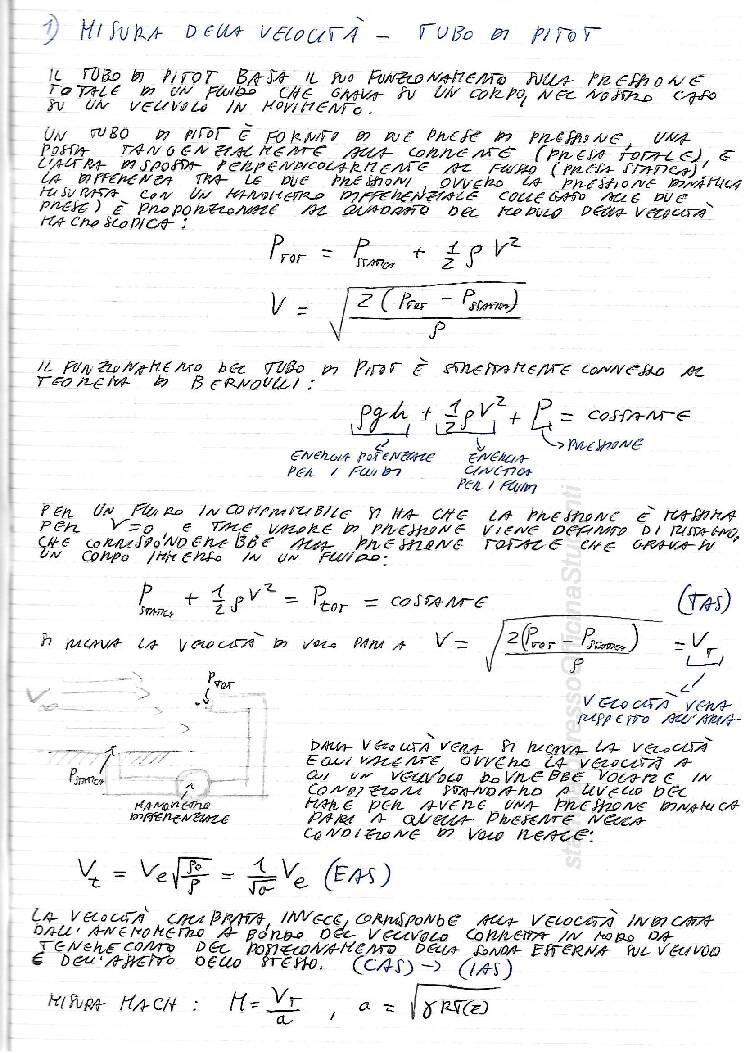 1) MISURA DELLA VELOCITÀ - TUBO DI PITOT
IL TUBO DI PITOT BASA IL SUO FUNZIONAMENTO SULLA PRESSIONE
TOTALE DI UN FLUIDO CHE GRAVA SU UN CORPO, NEL NOSTRO CASO
SU UN VELIVOLO IN MOVIMENTO.
UN TUBO DI PITOT È FORNITO DI DUE PRESE DI PRESSIONE, UNA
POSTA TANGENZIALMENTE ALLA CORRENTE (PRESA TOTALE), E
L'ALTRA DISPOSTA PERPENDICOLARMENTE AL FLUSSO (PRESA STATICA).
LA DIFFERENZA TRA LE DUE PRESSIONI OVVERO LA PRESSIONE DINAMICA
MISURATA CON UN MANOMETRO DIFFERENZIALE COLLEGATO ALLE DUE
PRESE) È PROPORZIONALE AL QUADRATO DEL MODULO DELLA VELOCITÀ
MACROSCOPICA:
P_TOT = P_STATICA + 1/2 ρ V²
V = √(2 (P_TOT - P_STATICA) / ρ)
IL FUNZIONAMENTO DEL TUBO DI PITOT È STRETTAMENTE CONNESSO AL
TEOREMA DI BERNOULLI:
ρgh + 1/2 ρV² + P = COSTANTE
→ PRESSIONE
ENERGIA POTENZIALE
PER I FLUIDI
ENERGIA
CINETICA
PER I FLUIDI
PER UN FLUIDO INCOMPRIMIBILE SI HA CHE LA PRESSIONE È MASSIMA
PER V=0 E TALE VALORE DI PRESSIONE VIENE DEFINITO DI RISTAGNO,
CHE CORRISPONDEREBBE ALLA PRESSIONE TOTALE CHE GRAVA SU
UN CORPO IMMERSO IN UN FLUIDO:
P_STATICA + 1/2 ρV² = P_TOT = COSTANTE
(TAS)
SI RICAVA LA VELOCITÀ DI VOLO PARI A V = √(2(P_TOT - P_STATICA) / ρ) = V_T
VELOCITÀ VERA
RISPETTO ALL'ARIA
P_TOT
V∞
P_STATICA
MANOMETRO
DIFFERENZIALE
DALLA VELOCITÀ VERA SI RICAVA LA VELOCITÀ
EQUIVALENTE OVVERO LA VELOCITÀ A
CUI UN VELIVOLO DOVREBBE VOLARE IN
CONDIZIONI STANDARD A LIVELLO DEL
MARE PER AVERE UNA PRESSIONE DINAMICA
PARI A QUELLA PRESENTE NELLA
CONDIZIONE DI VOLO REALE:
V_t = V_e √(ρ₀/ρ) = 1/√σ V_e (EAS)
LA VELOCITÀ CALIBRATA, INVECE, CORRISPONDE ALLA VELOCITÀ INDICATA
DALL'ANEMOMETRO A BORDO DEL VELIVOLO CORRETTA IN MODO DA
TENERE CONTO DEL POSIZIONAMENTO DELLA SONDA ESTERNA SUL VELIVOLO
E DELL'ASSETTO DELLO STESSO. (CAS) → (IAS)
MISURA MACH: M = V_T/a , a = √(γRT(z))